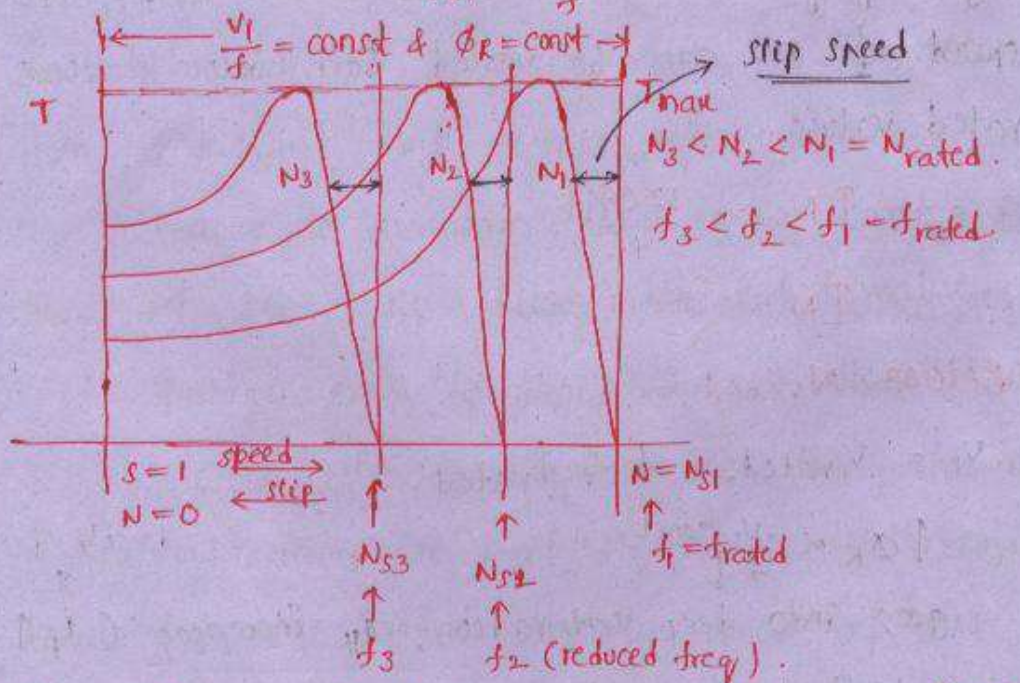 V1/f = const & ϕR = const
slip speed
T
Tmax
N3 < N2 < N1 = Nrated.
N3
N2
N1
f3 < f2 < f1 = frated.
S = 1
speed
slip
N = 0
N = NS1
f1 = frated
NS3
NS2
f3
f2 (reduced freq).